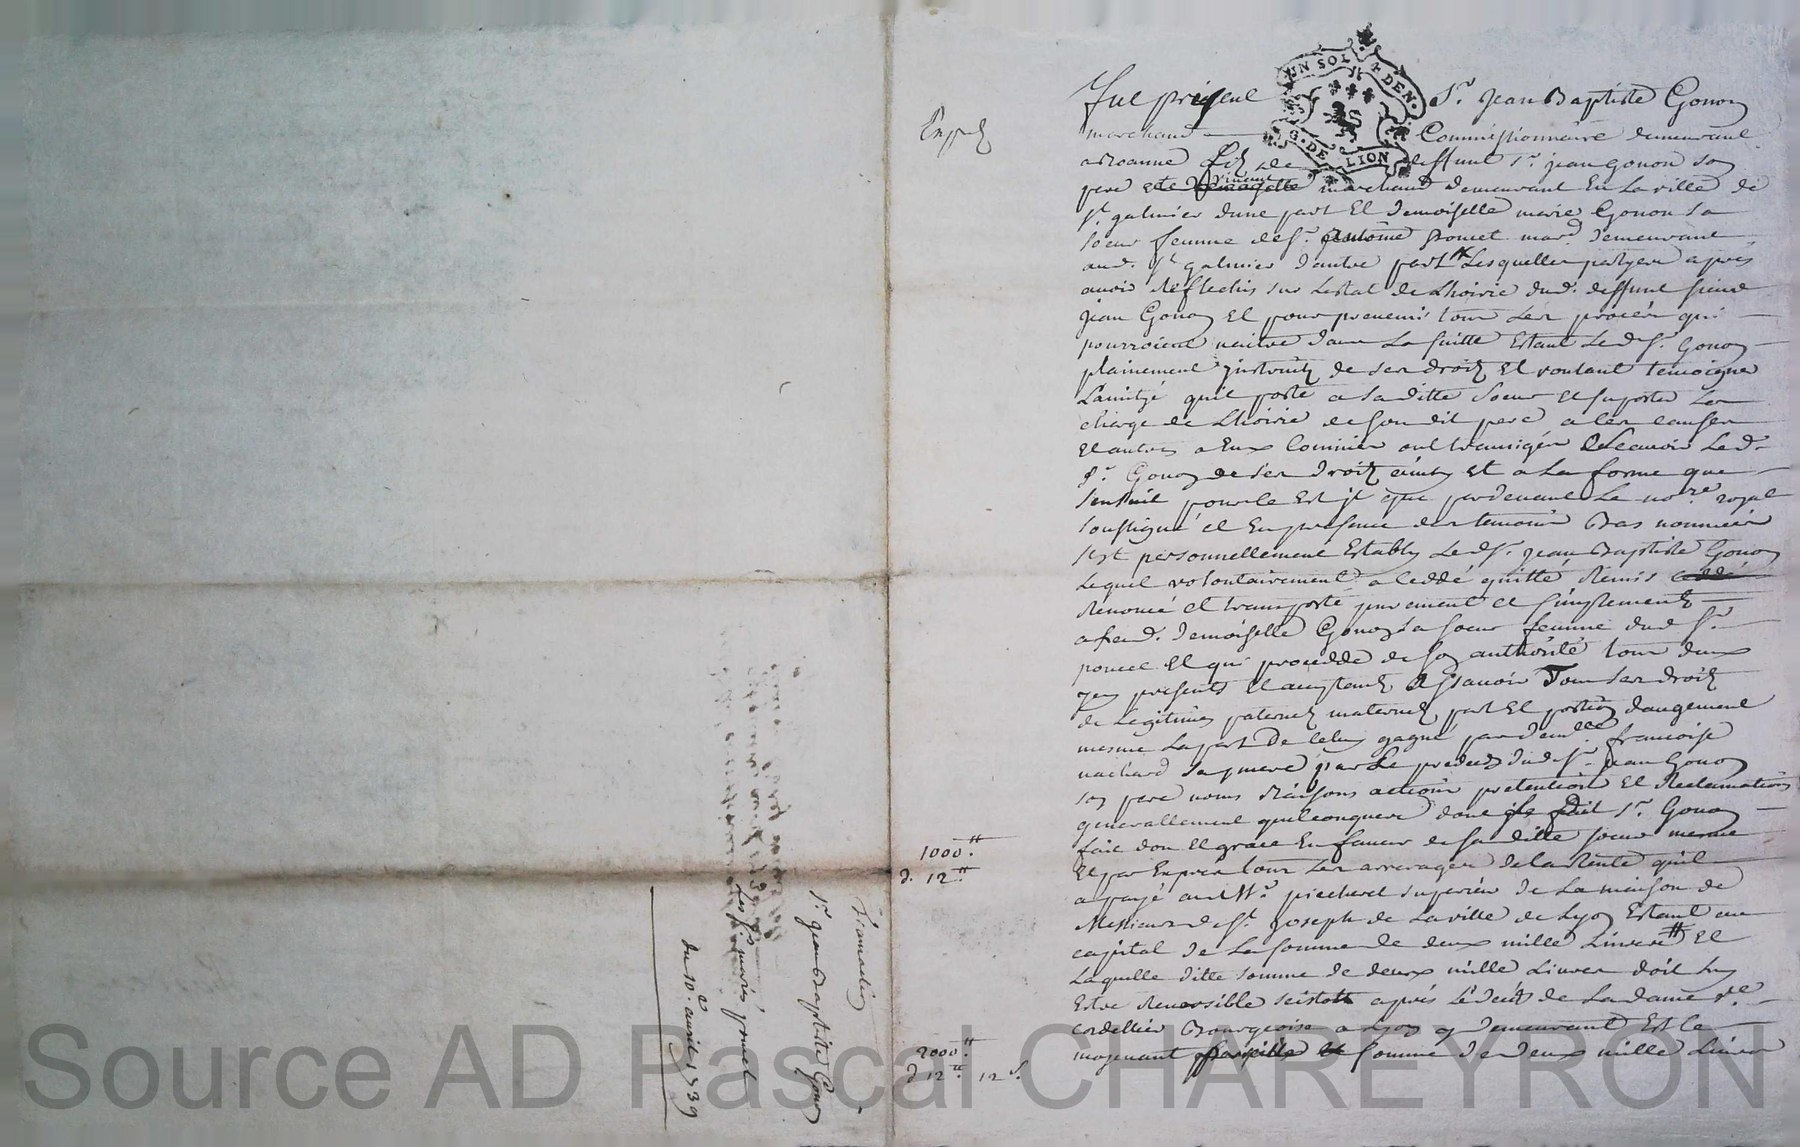 Fut présent Sr. Jean Baptiste Gonon
marchand Commissionnaire demeurant
a Roanne fils de deffunt Sr. jean gonon son
pere vivant marchand demeurant En La ville de
St galmier dune part Et demoiselle marie Gonon sa
soeur femme de Sr. poncet mard. demeurant
aud. St galmier dautre part Lesquelles partyes apres
avoir Reflechis sur Lestat de Lhoirie dud. deffunt sieur
jean Gonon Et pour prevenir tous Les procés qui
pourroient naitre dans La suitte Estant Led. Sr. Gonon
plainement jnstruit de ses droits Et voulant temoigner
Lamitjé quil porte a saditte soeur Et suporter Les
charge de Lhoirie de son dit pere a Ces causes
Et autres a Eux Connües ont transigés Led.
Sr. Gonon de ses droits ainsy Et a La forme que
sensuit pource Est jl que pardevant Le nore. royal
soussigné et En presence des temoins Bas nommés
sest personnellement Estably Led. Sr. jean Baptiste Gonon
Lequel volontairement a Ceddé quitté Remis
Renoncé et transporté purement et simplement
a lad. demoiselle Gonon sa soeur femme dud. Sr.
poncet Et qui procedde de son authorité tous deux
jcy presents Et acceptants Sçavoir Tous ses droits
de Legitimes paternels maternels part Et portion daugement
mesme La part de Celuy gagné par demlle. francoise
nachard sa mere par Le predeces dud. Sr. jean Gonon
son pere noms Raisons actions pretentions Et Reclamations
generallement quelconques dont Le dit Sr. Gonon
fait don Et grace En faveur de saditte soeur mesme
Et par Exprés tous Les arrerages de la Rente quil
a payé aud. Mr. superieur de La maison de
Messieurs de St. Joseph de La ville de Lyon Estant au
capital de La somme de deux mille Livres Et
Laquelle ditte somme de deux mille Livres doit Luy
Estre Reversible après Le deces de La dame
cordellier Bourgeoise a Lyon y demeurant Est Ce
moyenant somme de deux mille Livres
1000.tt
d. 12.tt
2000.tt
d 12.tt 12 s.
Transaction
Sr. jean Baptiste Gonon
Les Srs. mariés poncet
du 10e. avril 1739
Source AD Pascal CHAREYRON
UN SOL 4 DEN.
G. DE LION